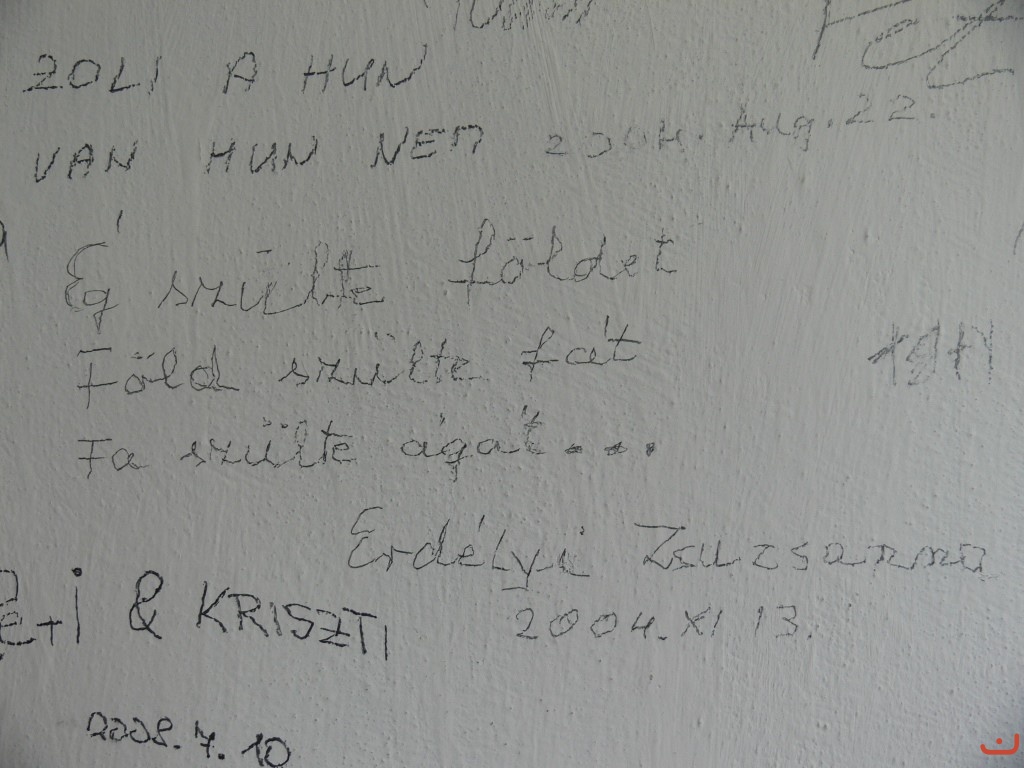 ZOLI A HUN
VAN HUN NEM 2004. Aug. 22.
Ég szülte földet
Föld szülte fát
Fa szülte ágát...
Erdélyi Zsuzsanna
2004. XI 13.
Peti & KRISZTI
2008.7.10